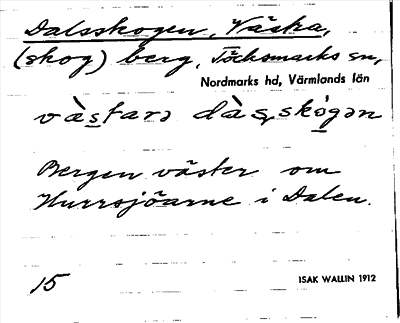 Dalsskogen, Västra,
(skog) berg, Töcksmarks sn,
Nordmarks hd, Värmlands län
Bergen väster om
Hurrsjöarne i Dalen.
15
ISAK WALLIN 1912